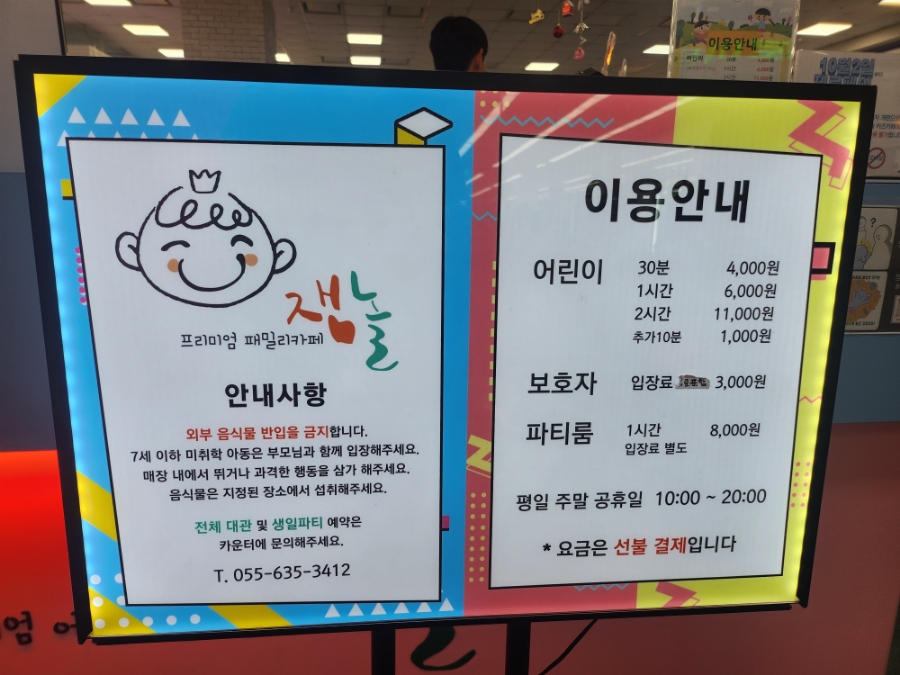 이용안내
잼놀
프리미엄 패밀리카페
안내사항
외부 음식물 반입을 금지합니다.
7세 이하 미취학 아동은 부모님과 함께 입장해주세요.
매장 내에서 뛰거나 과격한 행동을 삼가 해주세요.
음식물은 지정된 장소에서 섭취해주세요.
전체 대관 및 생일파티 예약은
카운터에 문의해주세요.
T. 055-635-3412
이용안내
어린이 30분 4,000원
1시간 6,000원
2시간 11,000원
추가10분 1,000원
보호자 입장료 3,000원
파티룸 1시간 8,000원
입장료 별도
평일 주말 공휴일 10:00 ~ 20:00
* 요금은 선불 결제입니다